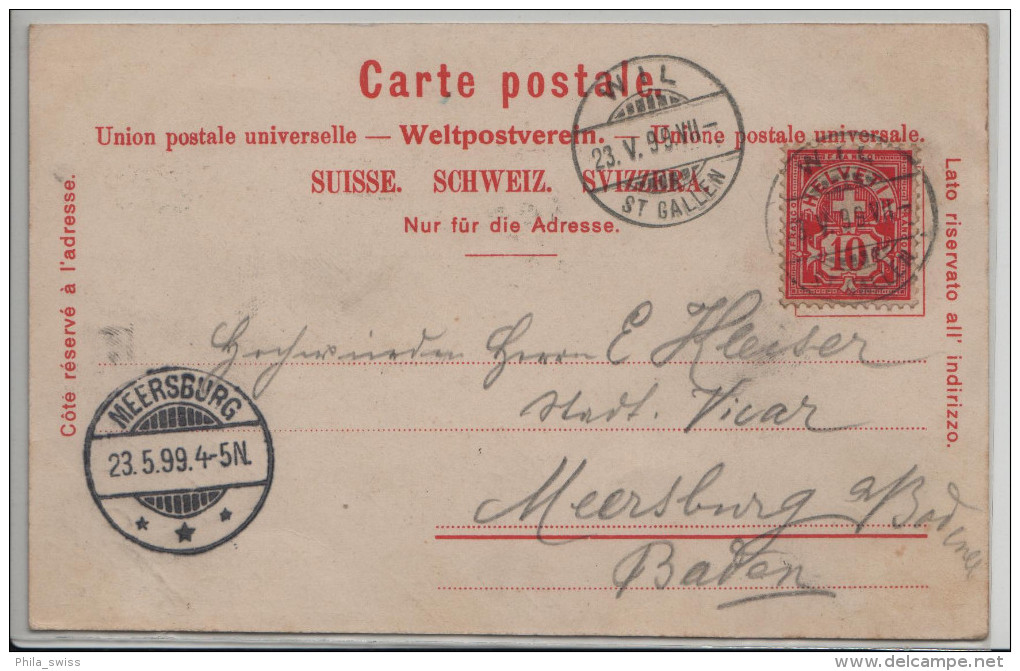 Carte postale.
Union postale universelle — Weltpostverein. — Unione postale universale.
SUISSE. SCHWEIZ. SVIZZERA.
Nur für die Adresse.
Côté réservé à l'adresse.
Lato riservato all' indirizzo.
WIL
23. V. 99. VII—
ST GALLEN
WIL
FRANCO
HELVETIA
FRANCO
FRANCO
10
MEERSBURG
23.5.99.4-5N.
Hochwürden Herrn E Kleiser
Stadt. Vicar
Meersburg a/Bodensee
Baden
Phila_swiss
delcampe.net